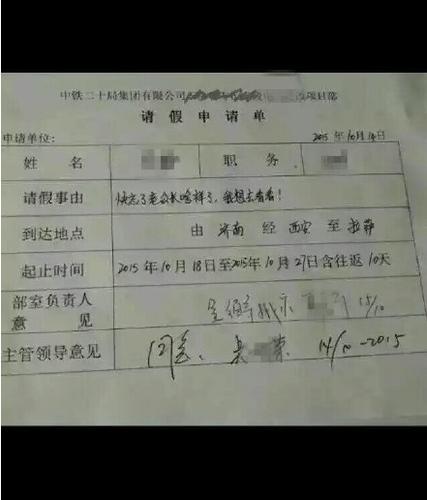 中铁二十局集团有限公司 项目部
请假申请单
申请单位: 2015年10月14日
姓名 职务
请假事由 快忘了老公长啥样了,我想去看看!
到达地点 由 济南 经 西安 至 拉萨
起止时间 2015年10月18日至2015年10月27日含往返10天
部室负责人
意见 批示 15/10
主管领导意见 同意、 14/10-2015